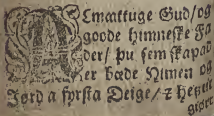 ALmættuge Gud/ og
goode himneske Fa
der/ þu sem skapad
er bæde Himen og
Jørd a fyrsta Deige/ z hefur
giørt